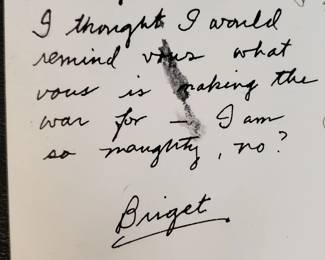 I thought I would
remind vous what
vous is making the
war for — I am
so naughty, no?
Briget